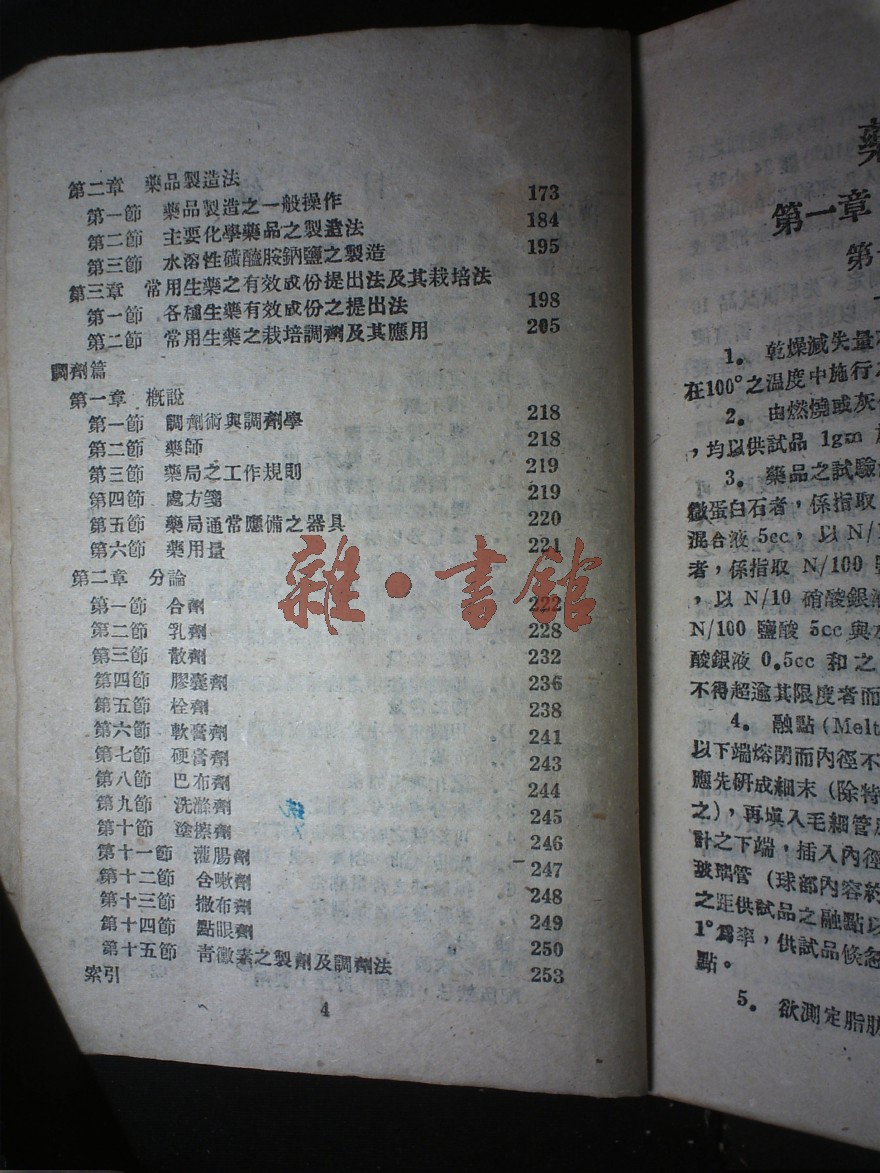 第二章 藥品製造法
第一節 藥品製造之一般操作 173
第二節 主要化學藥品之製造法 184
第三節 水溶性磺醯胺鈉鹽之製造 195
第三章 常用生藥之有效成份提出法及其栽培法
第一節 各種生藥有效成份之提出法 198
第二節 常用生藥之栽培調劑及其應用 205
調劑篇
第一章 概說
第一節 調劑術與調劑學 218
第二節 藥師 218
第三節 藥局之工作規則 219
第四節 處方箋 219
第五節 藥局通常應備之器具 220
第六節 藥用量 221
第二章 分論
第一節 合劑 222
第二節 乳劑 228
第三節 散劑 232
第四節 膠囊劑 236
第五節 栓劑 238
第六節 軟膏劑 241
第七節 硬膏劑 243
第八節 巴布劑 244
第九節 洗滌劑 245
第十節 塗擦劑 246
第十一節 灌腸劑 247
第十二節 含嗽劑 248
第十三節 撒布劑 249
第十四節 點眼劑 250
第十五節 青黴素之製劑及調劑法 253
索引
4
雜·書館
藥
第一章
第
1。 乾燥減失量
在100°之溫度中施行
2。 由燃燒或灰
，均以供試品 1gm
3。 藥品之試驗
微蛋白石者，係指取
混合液 5cc， 以 N/1
者，係指取 N/100 鹽
，以 N/10 硝酸銀液
N/100 鹽酸 5cc 與水
酸銀液 0.5cc 和之
不得超逾其限度者而
4。 融點 (Melt
以下端熔閉而內徑不
應先研成細末 (除特
之)，再填入毛細管
計之下端，插入內徑
玻璃管 (球部內容約
之距供試品之融點以
1°爲率，供試品倏忽
點。
5。 欲測定脂肪